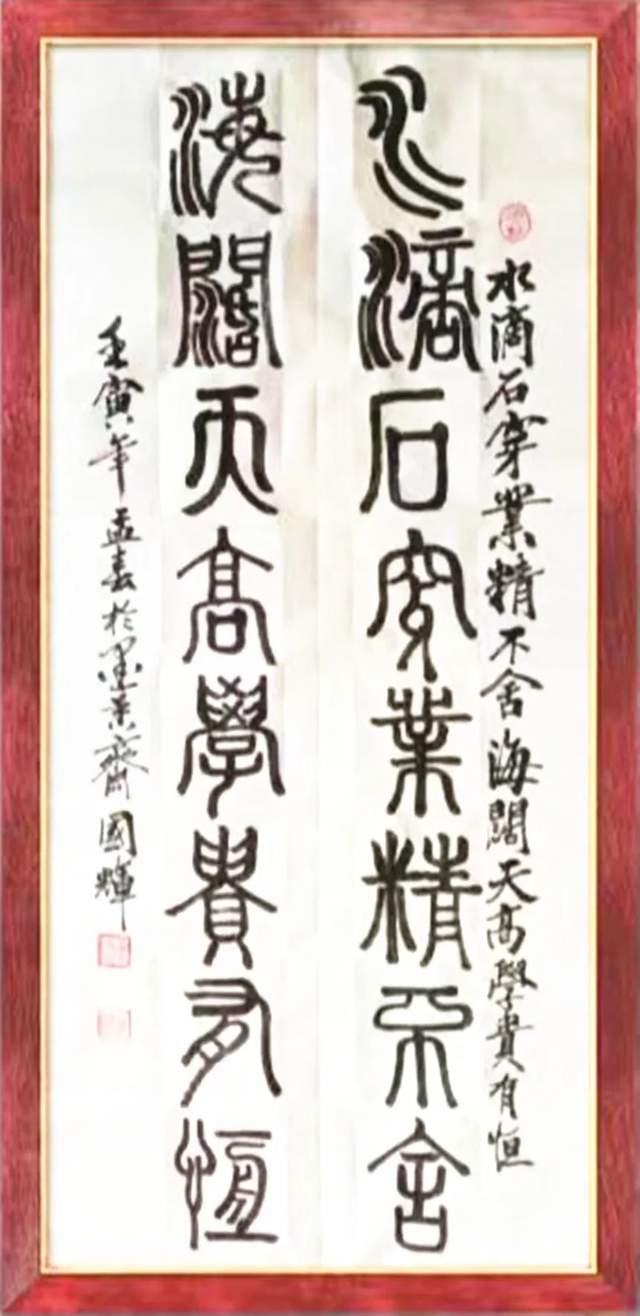 水滴石穿業精不舍海闊天高學貴有恒
水滴石穿業精不舍
海闊天高學貴有恒
壬寅年孟春於墨景齋國輝